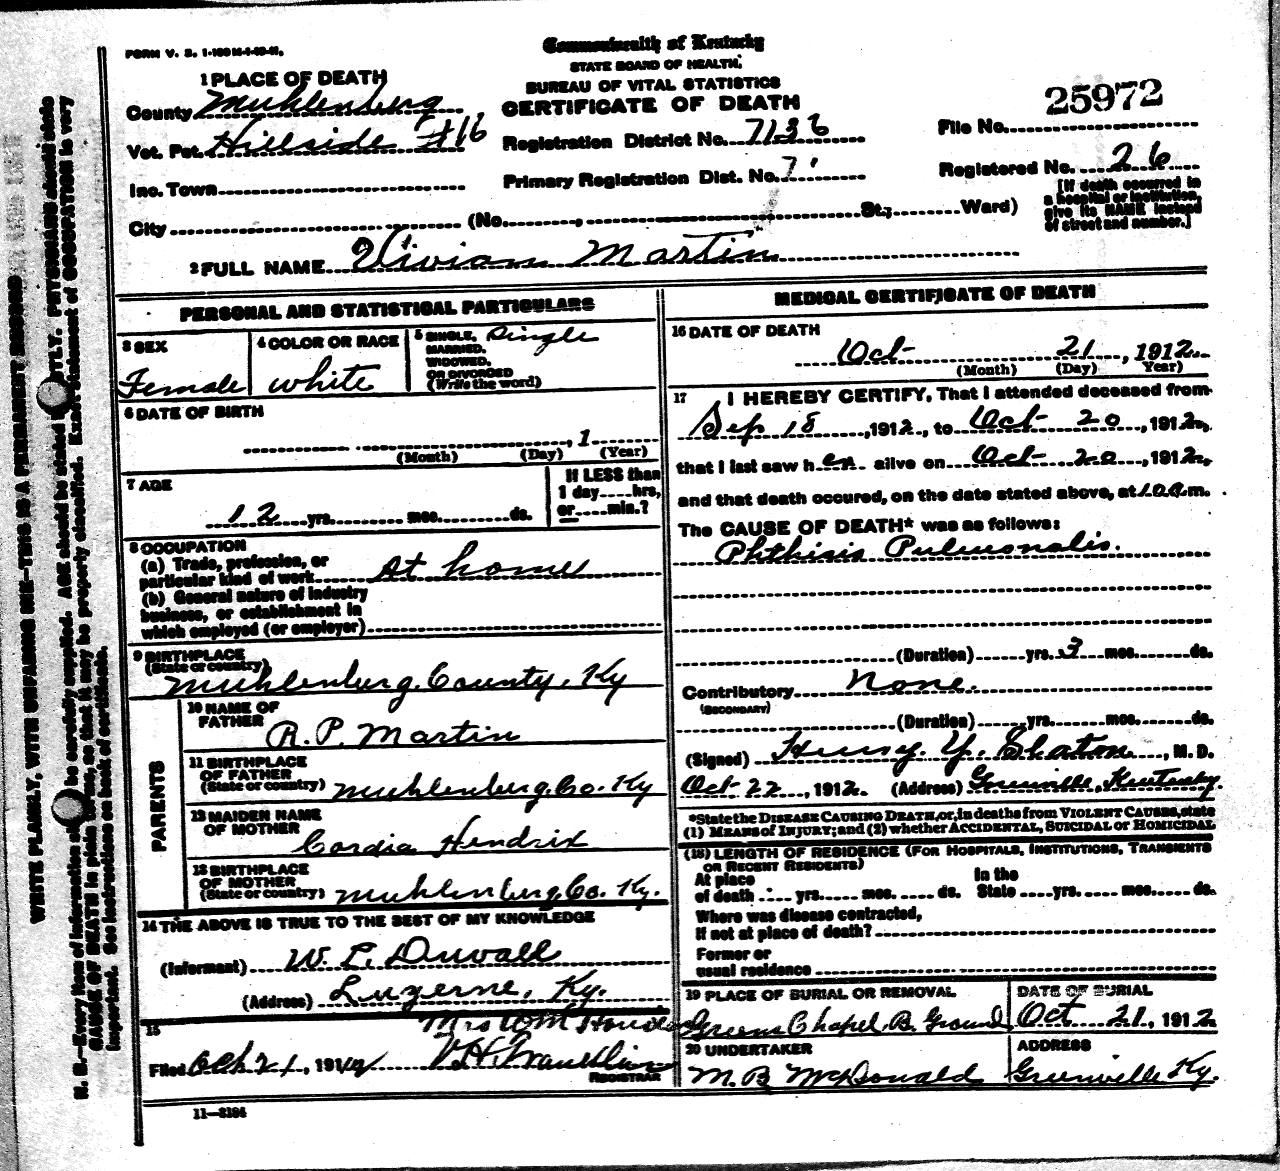 FORM V. S. 1-
Commonwealth of Kentucky
STATE BOARD OF HEALTH.
BUREAU OF VITAL STATISTICS
CERTIFICATE OF DEATH
1 PLACE OF DEATH
County Muhlenberg
Vot. Pct. Hillside #16
Inc. Town
City (No. , St.; Ward)
Registration District No. 7136
Primary Registration Dist. No. 7
25972
File No.
Registered No. 26
[If death occurred in
a hospital or institution,
give its NAME instead
of street and number.]
2 FULL NAME Vivian Martin
PERSONAL AND STATISTICAL PARTICULARS
3 SEX
Female
4 COLOR OR RACE
white
5 SINGLE, Single
MARRIED,
WIDOWED,
OR DIVORCED
(Write the word)
6 DATE OF BIRTH
, 1
(Month) (Day) (Year)
7 AGE
12 yrs. mos. ds.
If LESS than
1 day hrs,
or min.?
8 OCCUPATION
(a) Trade, profession, or
particular kind of work At home
(b) General nature of industry
business, or establishment in
which employed (or employer)
9 BIRTHPLACE
(State or country)
Muhlenburg. County, Ky
PARENTS
10 NAME OF
FATHER
R. P. Martin
11 BIRTHPLACE
OF FATHER
(State or country) Muhlenberg. Co. Ky
12 MAIDEN NAME
OF MOTHER
Cordia Hendrix
13 BIRTHPLACE
OF MOTHER
(State or country) Muhlenberg. Co. Ky.
14 THE ABOVE IS TRUE TO THE BEST OF MY KNOWLEDGE
(Informant) W. L. Duvall
(Address) Luzerne, Ky.
15 Mrs WM
Filed Oct 21, 191
REGISTRAR
11—3194
MEDICAL CERTIFICATE OF DEATH
16 DATE OF DEATH
Oct 21, 1912
(Month) (Day) Year)
17 I HEREBY CERTIFY, That I attended deceased from
Sep 18, 1912, to Oct 20, 1912,
that I last saw her alive on Oct 20, 1912,
and that death occured, on the date stated above, at m.
The CAUSE OF DEATH* was as follows:
Phthisis Pulmonalis.
(Duration) yrs. 3 mos. ds.
Contributory None.
(SECONDARY)
(Duration) yrs. mos. ds.
(Signed) Henry. Y. Slaton, M. D.
Oct 22, 1912. (Address) Greenville, Kentucky.
*State the DISEASE CAUSING DEATH, or, in deaths from VIOLENT CAUSES, state
(1) MEANS of INJURY; and (2) whether ACCIDENTAL, SUICIDAL or HOMICIDAL
(18) LENGTH OF RESIDENCE (FOR HOSPITALS, INSTITUTIONS, TRANSIENTS
OR RECENT RESIDENTS)
At place In the
of death yrs. mos. ds. State yrs. mos. ds.
Where was disease contracted,
If not at place of death?
Former or
usual residence
19 PLACE OF BURIAL OR REMOVAL
Greens Chapel. B. Ground
DATE OF BURIAL
Oct 21, 1912
20 UNDERTAKER
M. B McDonald
ADDRESS
Greenville Ky.
WRITE PLAINLY, WITH UNFADING INK—THIS IS A PERMANENT RECORD
N. B.—Every item of information be carefully supplied. AGE should be stated EXACTLY. PHYSICIANS should state
CAUSE OF DEATH in plain terms, so that it may be properly classified. Exact statement of OCCUPATION is very
important. See instructions on back of certificate.